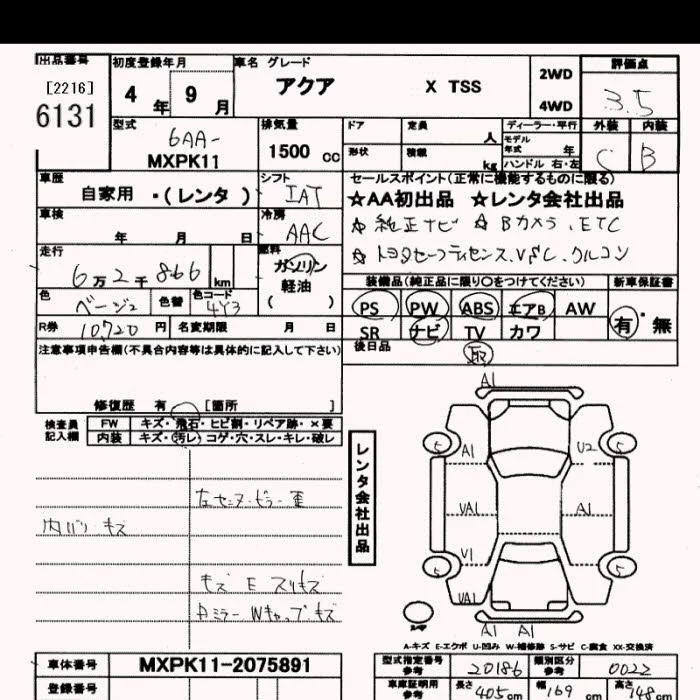 出品番号 初度登録年月 車名 グレード 評価点
[2216] 6131
4 年 9 月
アクア X TSS
2WD
4WD
3.5
型式 排気量 ドア 定員 人 ディーラー・平行 外装 内装
6AA-
MXPK11
1500 cc
形状 積載 kg
モデル年式 年
ハンドル 右・左
C B
車歴 シフト セールスポイント(正常に機能するものに限る)
自家用 ・(レンタ)
IAT
☆AA初出品 ☆レンタ会社出品
車検 冷房
年 月 日
AAC
☆純正ナビ ☆Bカメラ.ETC
走行 燃料
6万2千866 km
ガソリン
軽油
( )
☆トヨタセーフティセンス.VSC.クルコン
色 ベージュ 色替 色コード 4Y3
装備品(純正品に限り〇をつけてください) 新車保証書
PS PW ABS エアB AW
SR ナビ TV カワ
有・無
R券 10720 円 名変期限 月 日
後日品
取
注意事項申告欄(不具合内容等は具体的に記入して下さい)
修復歴 有 [箇所 ]
検査員記入欄
FW キズ・飛石・ヒビ割・リペア跡・×要
内装 キズ・汚レ・コゲ・穴・スレ・キレ・破レ
左センターピラー歪
内バリ キズ
キズ E スリキズ
Aミラー Wキャップキズ
レンタ会社出品
A1
5 5
A1 U2
UA1 A1
V1
5 5
UA1
A1 A1
A-キズ E-エクボ U-凹み W-補修跡 S-サビ C-腐食 XX-交換済
車体番号 MXPK11-2075891
登録番号
型式指定番号参考 20186 類別区分参考 0022
車庫証明用参考 長さ 405 cm 幅 169 cm 高さ 148 cm